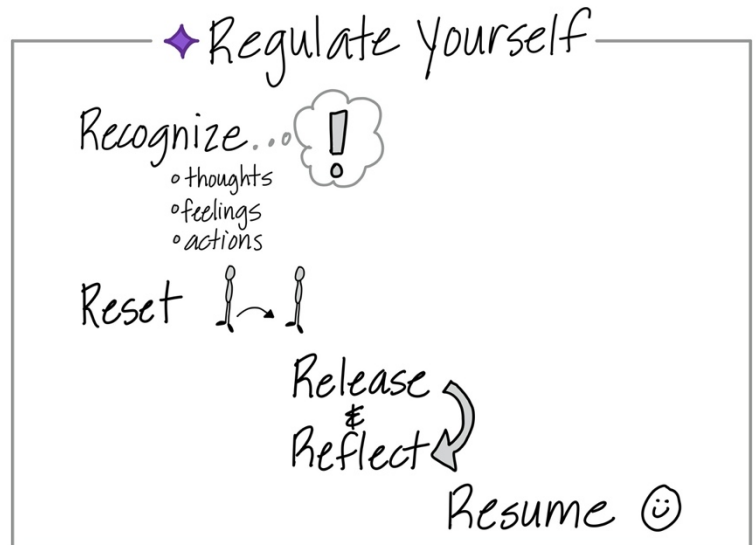 Regulate Yourself
Recognize...
thoughts
feelings
actions
Reset
Release
&
Reflect
Resume